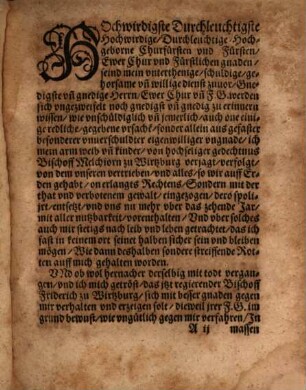 HOchwirdigste Durchleuchtigste
Hochwirdige/Durchleuchtige Hoch-
geborne Churfürsten vnd Fürsten/
Ewer Chur vnd Fürstlichen gnaden/
seind mein vnterthenige/schuldige/ge-
horsame vñ willige dienst zuuor. Gne-
digste vñ gnedige Herrn/Ewer Chur vñ F. G. werden
sich vngezweifelt noch gnedigst vñ gnedig zu erinnern
wissen/wie vnschüldiglich vñ jemerlich/auch one eini-
ge redliche/gegebene vrsache/sonder allein aus gefaster
besonderer vnuerschulter eigenwilliger vngnade/ich
mein arm weib vñ kinder/von hochseliger gedechtnus
Bischoff Melchiorn zu Wirtzburg verjagt/verfolgt/
von dem vnseren vertrieben/vnd alles/so wir auff Er-
den gehabt/on erlangts Rechtens/Sondern mit der
that vnd verbotenem gewalt/eingezogen/deres spoli-
jert/entsetzt/vnd vns nu mehr vber das zehende Jar/
mit aller nutzbarkeit/vorenthalten/Vnd vber solches
auch mir stetigs nach leib vnd leben getrachtet/das ich
fast in keinem ort seinet halben sicher sein vnd bleiben
mögen/Wie dann deshalben sondere streiffende Rot-
ten auff mich gehalten worden.
VNd ob wol hernacher derselbig mit todt vergan-
gen/vnd ich mich getröst/das itzt regierender Bischoff
Friderich zu Wirtzburg/sich mit besser gnaden gegen
mir verhalten vnd erzeigen solt/dieweil jrer F. G. im
grund bewust/wie vngütlich gegen mir verfahren/In
A ij massen